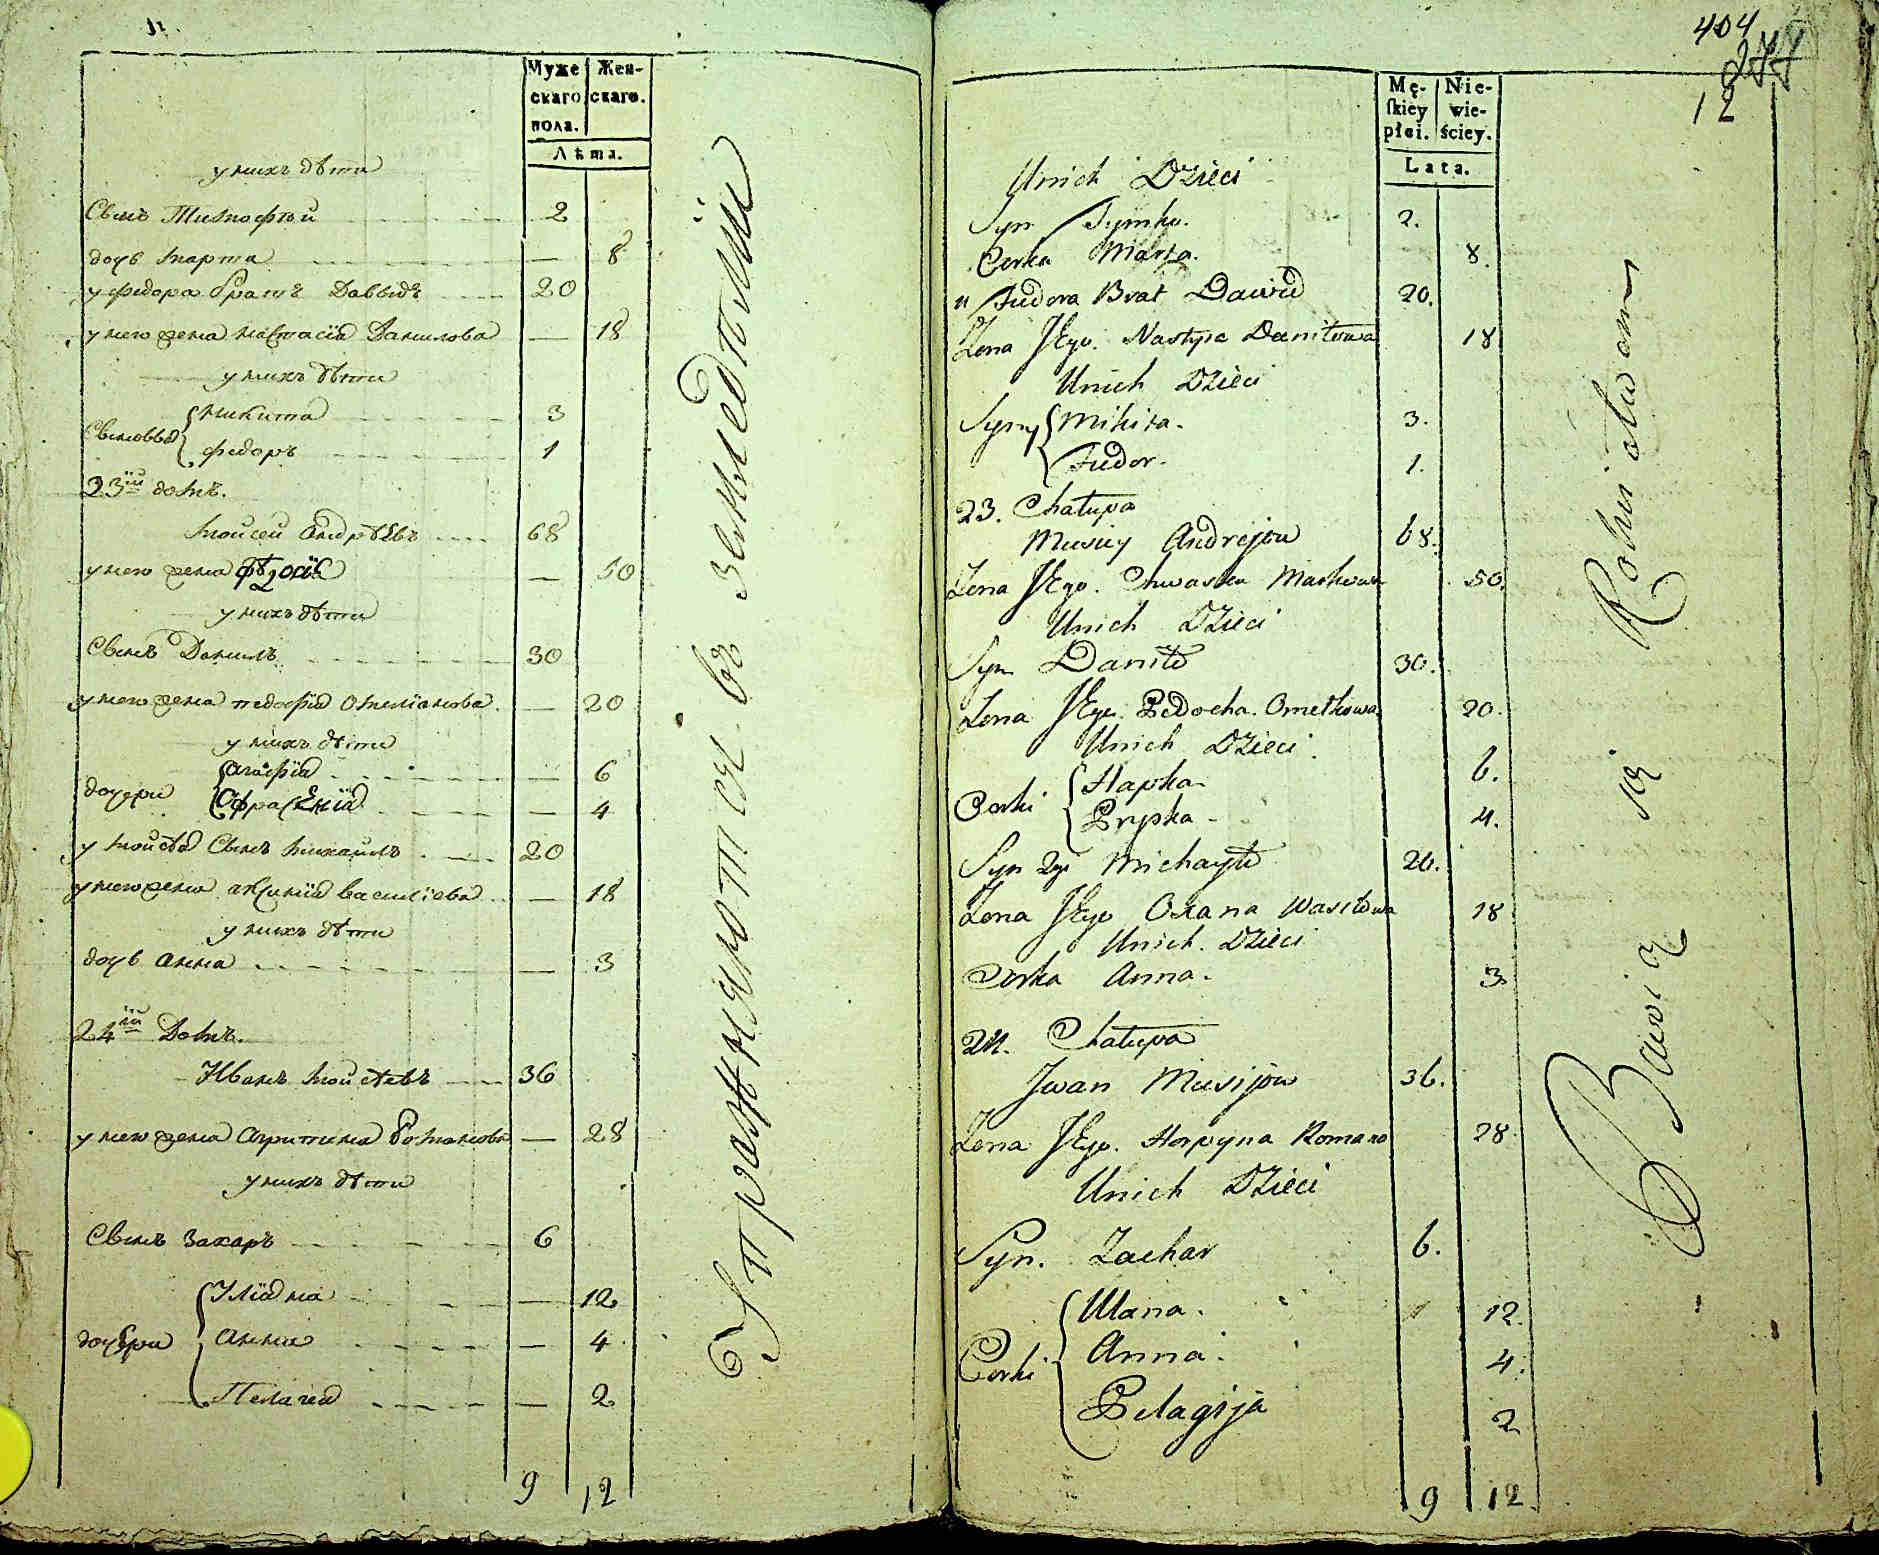 Муже
скаго
пола.
Жен-
скаго.
Лѣта.
у нихъ дѣти
Сынъ Тимофѣй 2
дочь Марта — 8
у Федора братъ Давыдъ 20
у него жена Настасія Данилова — 18
у нихъ дѣти
Сыновья Никита 3
Федоръ 1
23ій домъ.
Мойсей Андрѣевъ 68
у него жена — 50
у нихъ дѣти
Сынъ Данилъ 30
у него жена Педосія Омеліанова — 20
у нихъ дѣти
дочери Агафія — 6
Офрасенія — 4
у Мойсѣя Сынъ Михайлъ 20
у него жена Аксинія Василіева — 18
у нихъ дѣти
дочь Анна — 3
24ій Домъ.
Иванъ Мойсѣевъ 36
у него жена Агрипина Романова — 28
у нихъ дѣти
Сынъ Захаръ 6
дочери Уліяна — 12
Анна — 4
Пелагея — 2
9 12
Упражняются въ земледѣліи
404
277
12
Mę-
skiey
płci.
Nie-
wie-
ściey.
Lata.
Unich Dzieci
Syn Tymko. 2.
Corka Marta. 8
u Fudora Brat Dawid 20.
Zona JEgo. Nastyia Daniłowa 18
Unich Dzieci
Syny Mikita. 3.
Fudor. 1.
23. Chałupa
Musiy Andrejow 68.
Zona JEgo. Chwaska Markowa 50.
Unich Dzieci
Syn Daniło 30.
Zona JEgo. Pedocha. Omelkowa 20.
Unich Dzieci
Corki Hapka 6.
Prypka 4.
Syn 2gi Michayło 20.
Zona JEgo Oxana Wasilowa 18
Unich. Dzieci
Corka Anna. 3.
24. Chałupa
Jwan Musijow 36.
Zona JEgo. Horpyna Romano 28.
Unich Dzieci
Syn. Zachar 6.
Corki Ulana. 12.
Anna. 4.
Pelagija 2
9 12.
Bawią się Rolnictwem